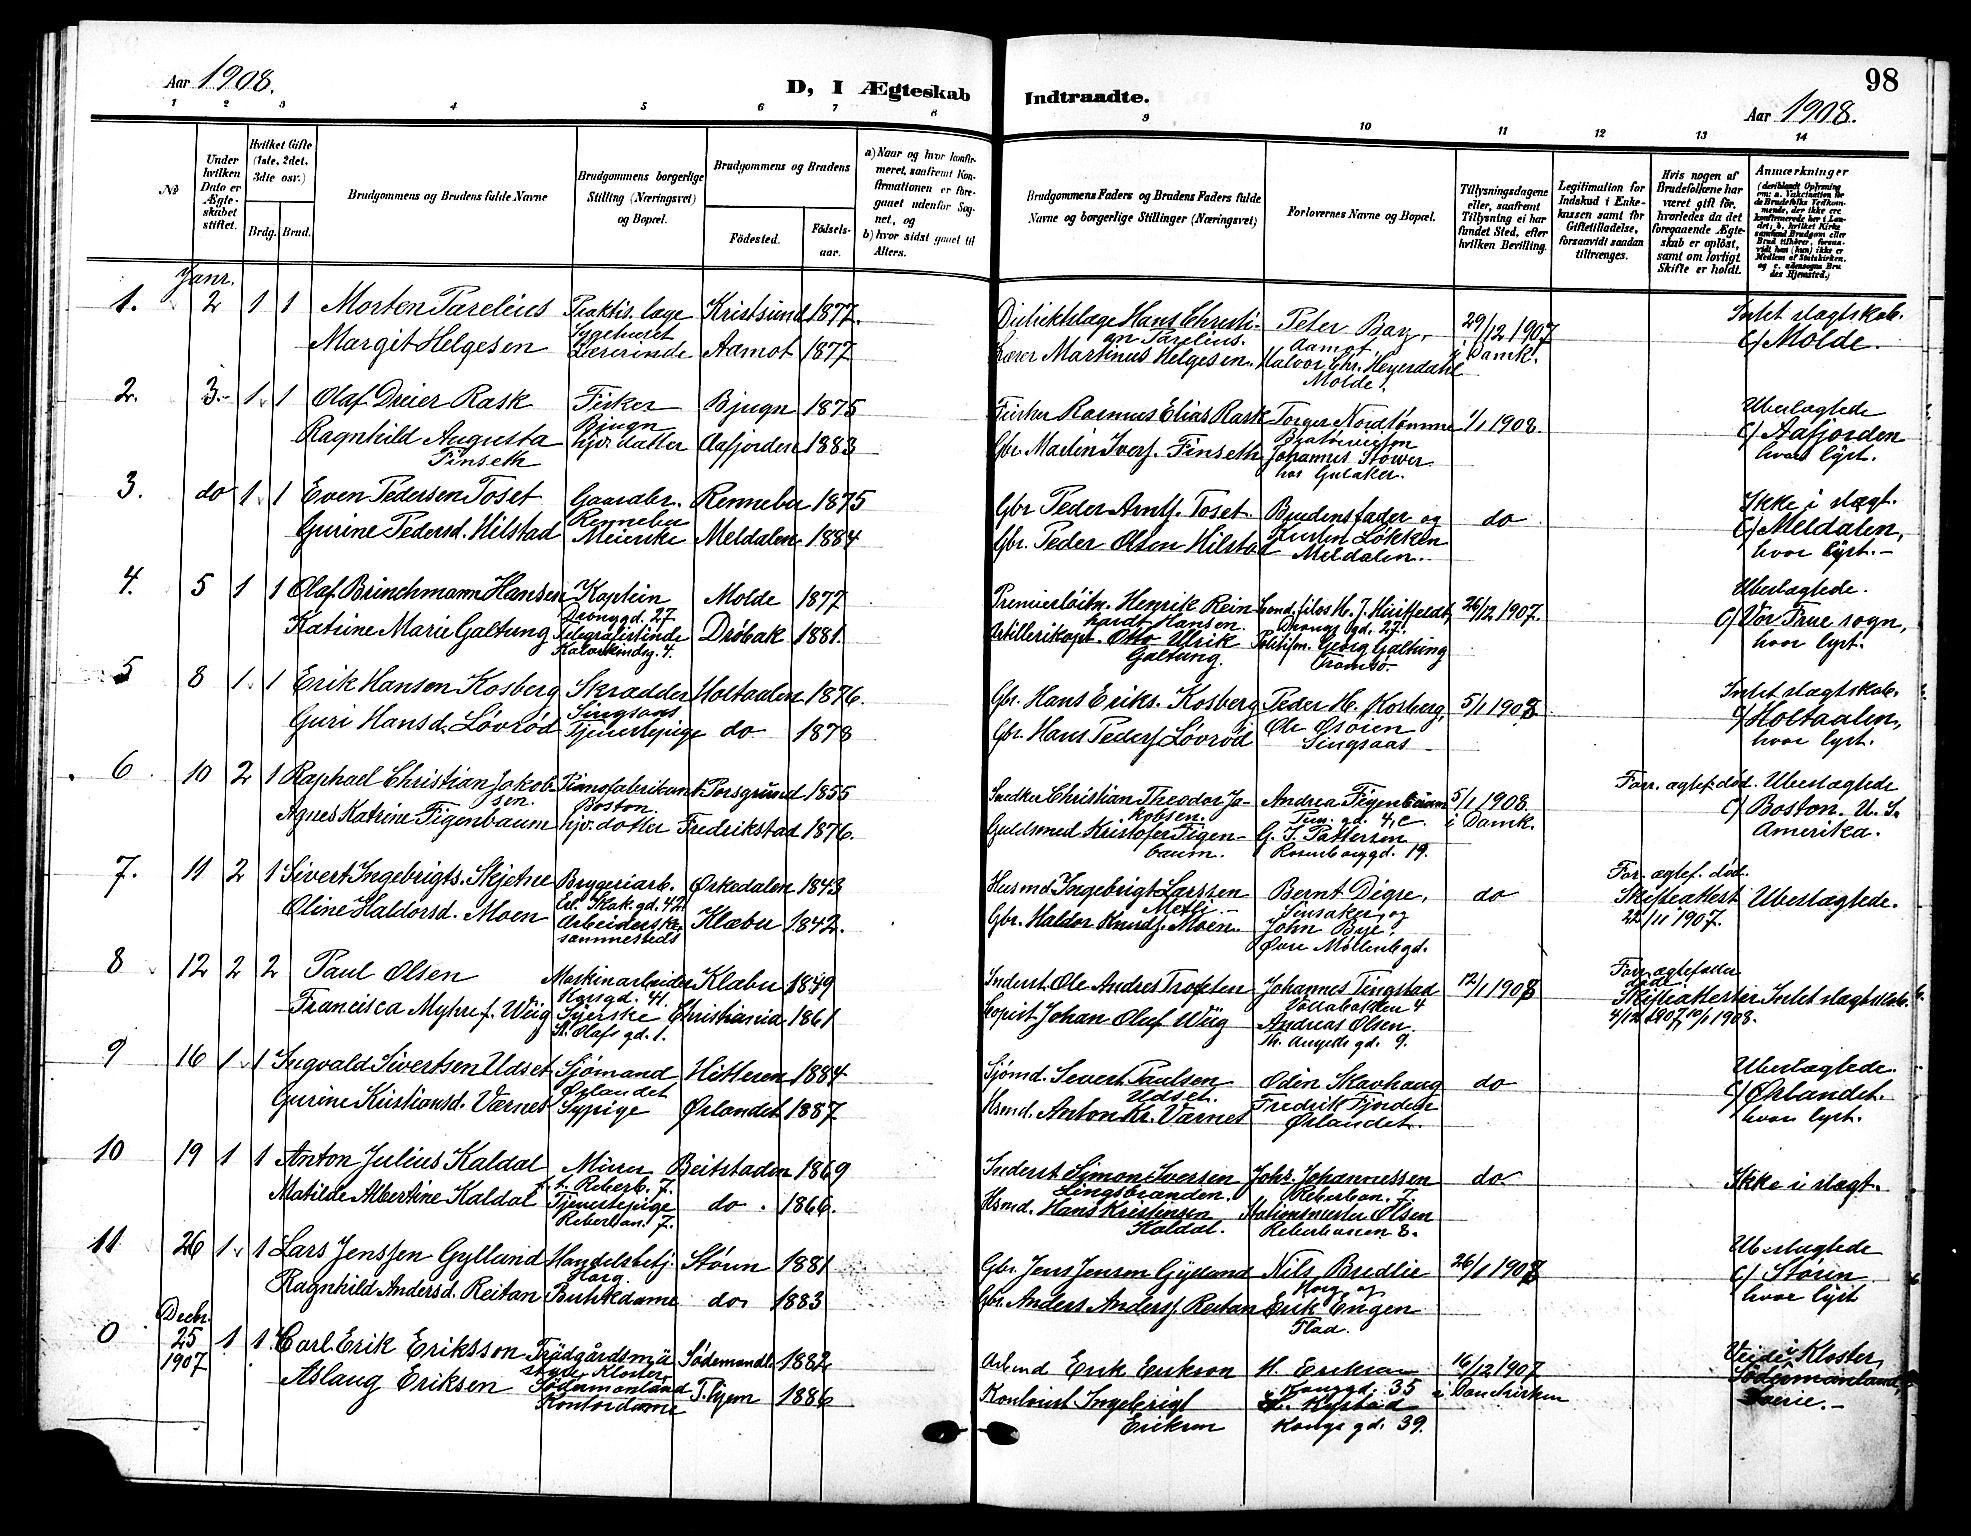 Aar 1908.
D, I Ægteskab Indtraadte.
98
Aar 1908.
1 2 3 4 5 6 7 8 9 10 11 12 13 14
No
Under hvilken Dato er Ægteskabet stiftet.
Hvilket Gifte (1ste, 2det, 3die osv.)
Brdg. Brud.
Brudgommens og Brudens fulde Navne
Brudgommens borgerlige Stilling (Næringsvei) og Bopæl.
Brudgommens og Brudens
Födested.
Födselsaar.
a) Naar og hvor konfirmeret, saafremt Konfirmationen er foregaaet udenfor Sognet, og
b) hvor sidst gaaet til Alters.
Brudgommens Faders og Brudens Faders fulde Navne og borgerlige Stillinger (Næringsvei)
Forlovernes Navne og Bopæl.
Tillysningsdagene eller, saafremt Tillysning ei har fundet Sted, efter hvilken Bevilling.
Legitimation for Indskud i Enkekassen samt for Giftetilladelse, forsaavidt saadan tiltrænges.
Hvis nogen af Brudefolkene har været gift för, hvorledes da det foregaaende Ægteskab er oplöst, samt om lovligt Skifte er holdt.
Anmærkninger
Janr.
1. 2 1 1 Morten Parelius Praktis. læge Kristsund 1877.
Margit Helgesen Lærerinde Aamot 1877
Distriktslæge Hans Christian Parelius. Peter Bay, Aamot 29/12 1907 i Domk. Intet slægtskab.
Lærer Martinus Helgesen. Halvor Chr. Heyerdahl Molde. c/ Molde.
2. 3. 1 1 Olaf Dreier Rask Fisker Bjugn Bjugn 1875
Ragnhild Augusta Finseth hjv. datter Aafjorden 1883
Fisker Rasmus Elias Rask Torger Nordtømme 1/1 1908. Ubeslægtede
Gbr. Martin Ivers. Finseth Johannes Støwer c/ Aafjorden hvor lyst.
3. do 1 1 Even Pedersen Toset Gaardbr. Rennebu Rennebu 1875
Gurine Pedersd. Hilstad Meierske Meldalen 1884
Gbr Peder Arntf. Toset. Brudens fader og do Ikke i slægt.
Gbr. Peder Olsen Hilstad Løkken Meldalen. c/ Meldalen, hvor lyst.
4. 5 1 1 Olaf Brinchmann Hansen Kaptein Molde 1877
Dronngd. 27
Katrine Marie Galtung Telegrafistinde Drøbak 1881.
Kalvskindsg. 4.
Premierløitn. Henrik Reinhardt Hansen. Cand. filos H. J. Huitfeldt, Drongs gd. 27. 26/12 1907. Ubeslægtede.
Artillerikapt. Otto Ulrik Galtung. Politifm. Georg Galtung Tromsø. c/ Vor Frue sogn, hvor lyst.
5 8 1 1 Erik Hansen Kosberg Skrædder Singsaas Holtaalen 1876.
Guri Hansd. Løvrød Tjenestepige do 1878
Gbr. Hans Eriks. Kosberg Peder H. Kosberg, 5/1 1908 Intet slægtskab.
Gbr. Hans Peders. Løvrød Ole Singsaas c/ Holtaalen, hvor lyst.
6 10 2 1 Raphael Christian Jakobsen. Pianofabrikant Boston. Porsgrund 1855
Agnes Katrine Figenbaum hjv. dotter Fredrikstad 1876.
Snedker Christian Theodor Jakobsen. Andrea Figenbaum 5/1 1908. i Domk. Forr. ægtef. død. Ubeslægtede
Guldsmed Kristofer Figenbaum. G. J. Pattersen Rosenborggd. 19. c/ Boston. U. S. Amerika.
7. 11 2 1 Sivert Ingebrigts. Skjetne Bryggeriarb. Ørkedalen 1843
Oline Haldorsd. Moen Arbeiderske sammesteds Klæbu 1842.
Husmd Ingebrigt Larssen Bernt Digre, do Forr. ægtef. død.
Gbr. Haldor Knuds. Moen. John Bye, Øvre Møllenbgd. Skifteattest 22/11 1907. Ubeslægtede.
8 12 2 2 Paul Olsen Maskinarbeider Klæbu 1849
Korsgd. 41.
Francisca Myhre f. Wiig Syerske Christiania 1861
St. Olafs gd. 1.
Inderst. Ole Andres Johannes Tingstad Vollabakken 4 12/1 1908 Forr. ægtefæller død.
Kopist Johan Oluf Wiig Andreas Olsen. Skifteattester 4/12 1907 10/1 1908. Intet slægtskab.
9 16 1 1 Ingvald Sivertsen Udset Sjømand Ørlandet Hitteren 1884
Gurine Kristiansd. Værnes Sypige Ørlandet 1887
Sjømd. Severt Paulsen Udset. Odin Skavhaug do Ubeslægtede.
Hsmd. Anton Kr. Værnes Fredrik Fjorden Ørlandet. c/ Ørlandet. hvor lyst.
10 19 1 1 Anton Julius Kaldal Murer Beitstaden 1869
Reberb. 7.
Matilde Albertine Kaldal Tjenestepige do. 1866.
Reberban. 7.
Inderst Simon Iversen Johs. Johannessen Reberban. 7 do. Ikke i slægt.
Hsmd. Hans Kristensen Kaldal. Stationsmester Olsen Reberbanen 8.
11 26 1 1 Lars Jenssen Gylland Handelsbetj. Horg. Støren 1881
Ragnhild Andersd. Reitan Butikdame do. 1883
Gbr. Jens Jensen Gylland Nils Bredlie Horg og 26/1 1908 Ubeslægtede
Gbr. Anders Anders. Reitan Erik Engen Flad. c/ Støren hvor lyst
Decbr.
0 25 1907 1 1 Carl Erik Eriksson Kloster, Södermanland 1882
Aslaug Eriksen Kontordame T.hjem 1886
Arbmd Erik Erikson H. Eriksen Kongsgd. 35 16/12 1907 i Domkirken Kloster, Södermanland,
Kontorist Ingebrigt Eriksen Kongs gd. 39. Sverie.